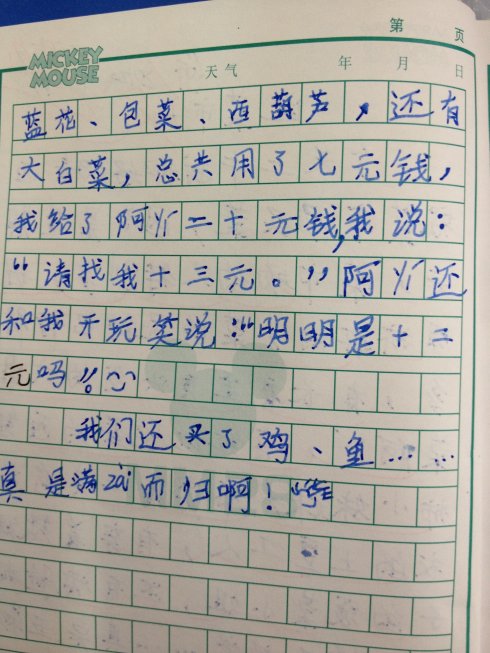 第 页
MICKEY MOUSE
天气 年 月 日
蓝花、包菜、西葫芦,还有
大白菜,总共用了七元钱,
我给了阿丫二十元钱,我说:
“请找我十三元。”阿丫还
和我开玩笑说:“明明是十二
元吗!!
我们还买了鸡、鱼……
真是满zai而归啊!